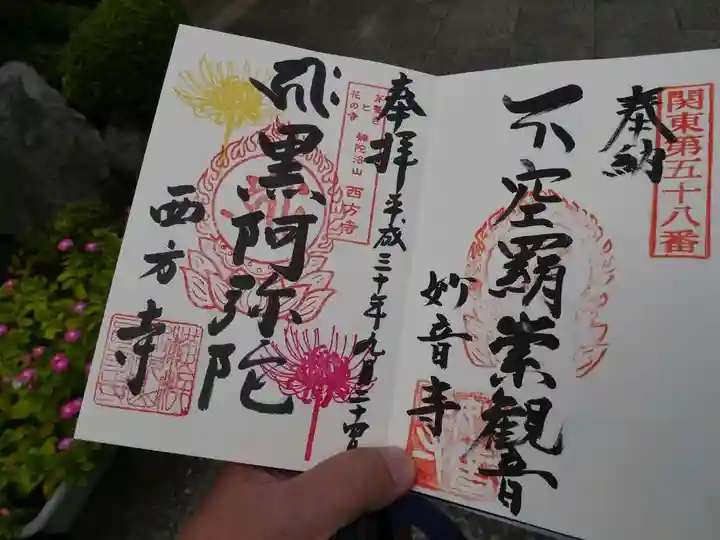 関東第五十八番
奉納
不空羂索観音
妙音寺
奉拝
平成三十年九月二十四日
花の寺
と
弥陀沿山
西方寺
黒阿弥陀
西方寺